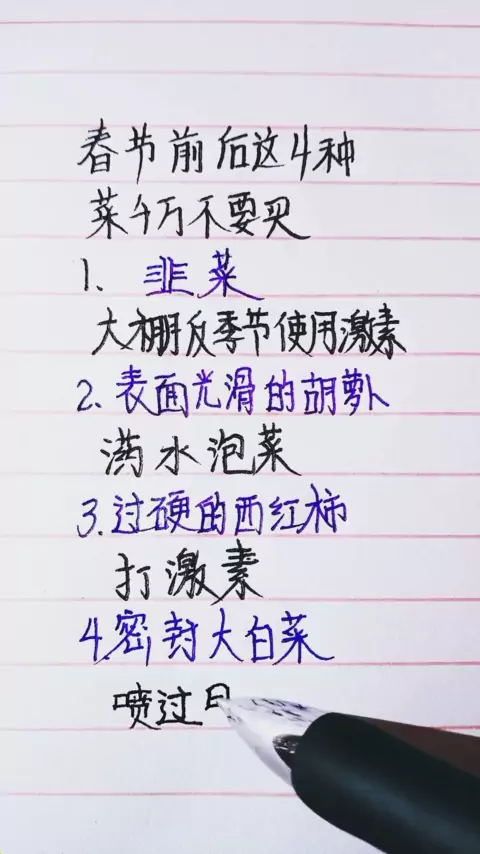 春节前后这4种
菜千万不要买
1、韭菜
大棚反季节使用激素
2.表面光滑的胡萝卜
满水泡菜
3.过硬的西红柿
打激素
4.密封大白菜
喷过